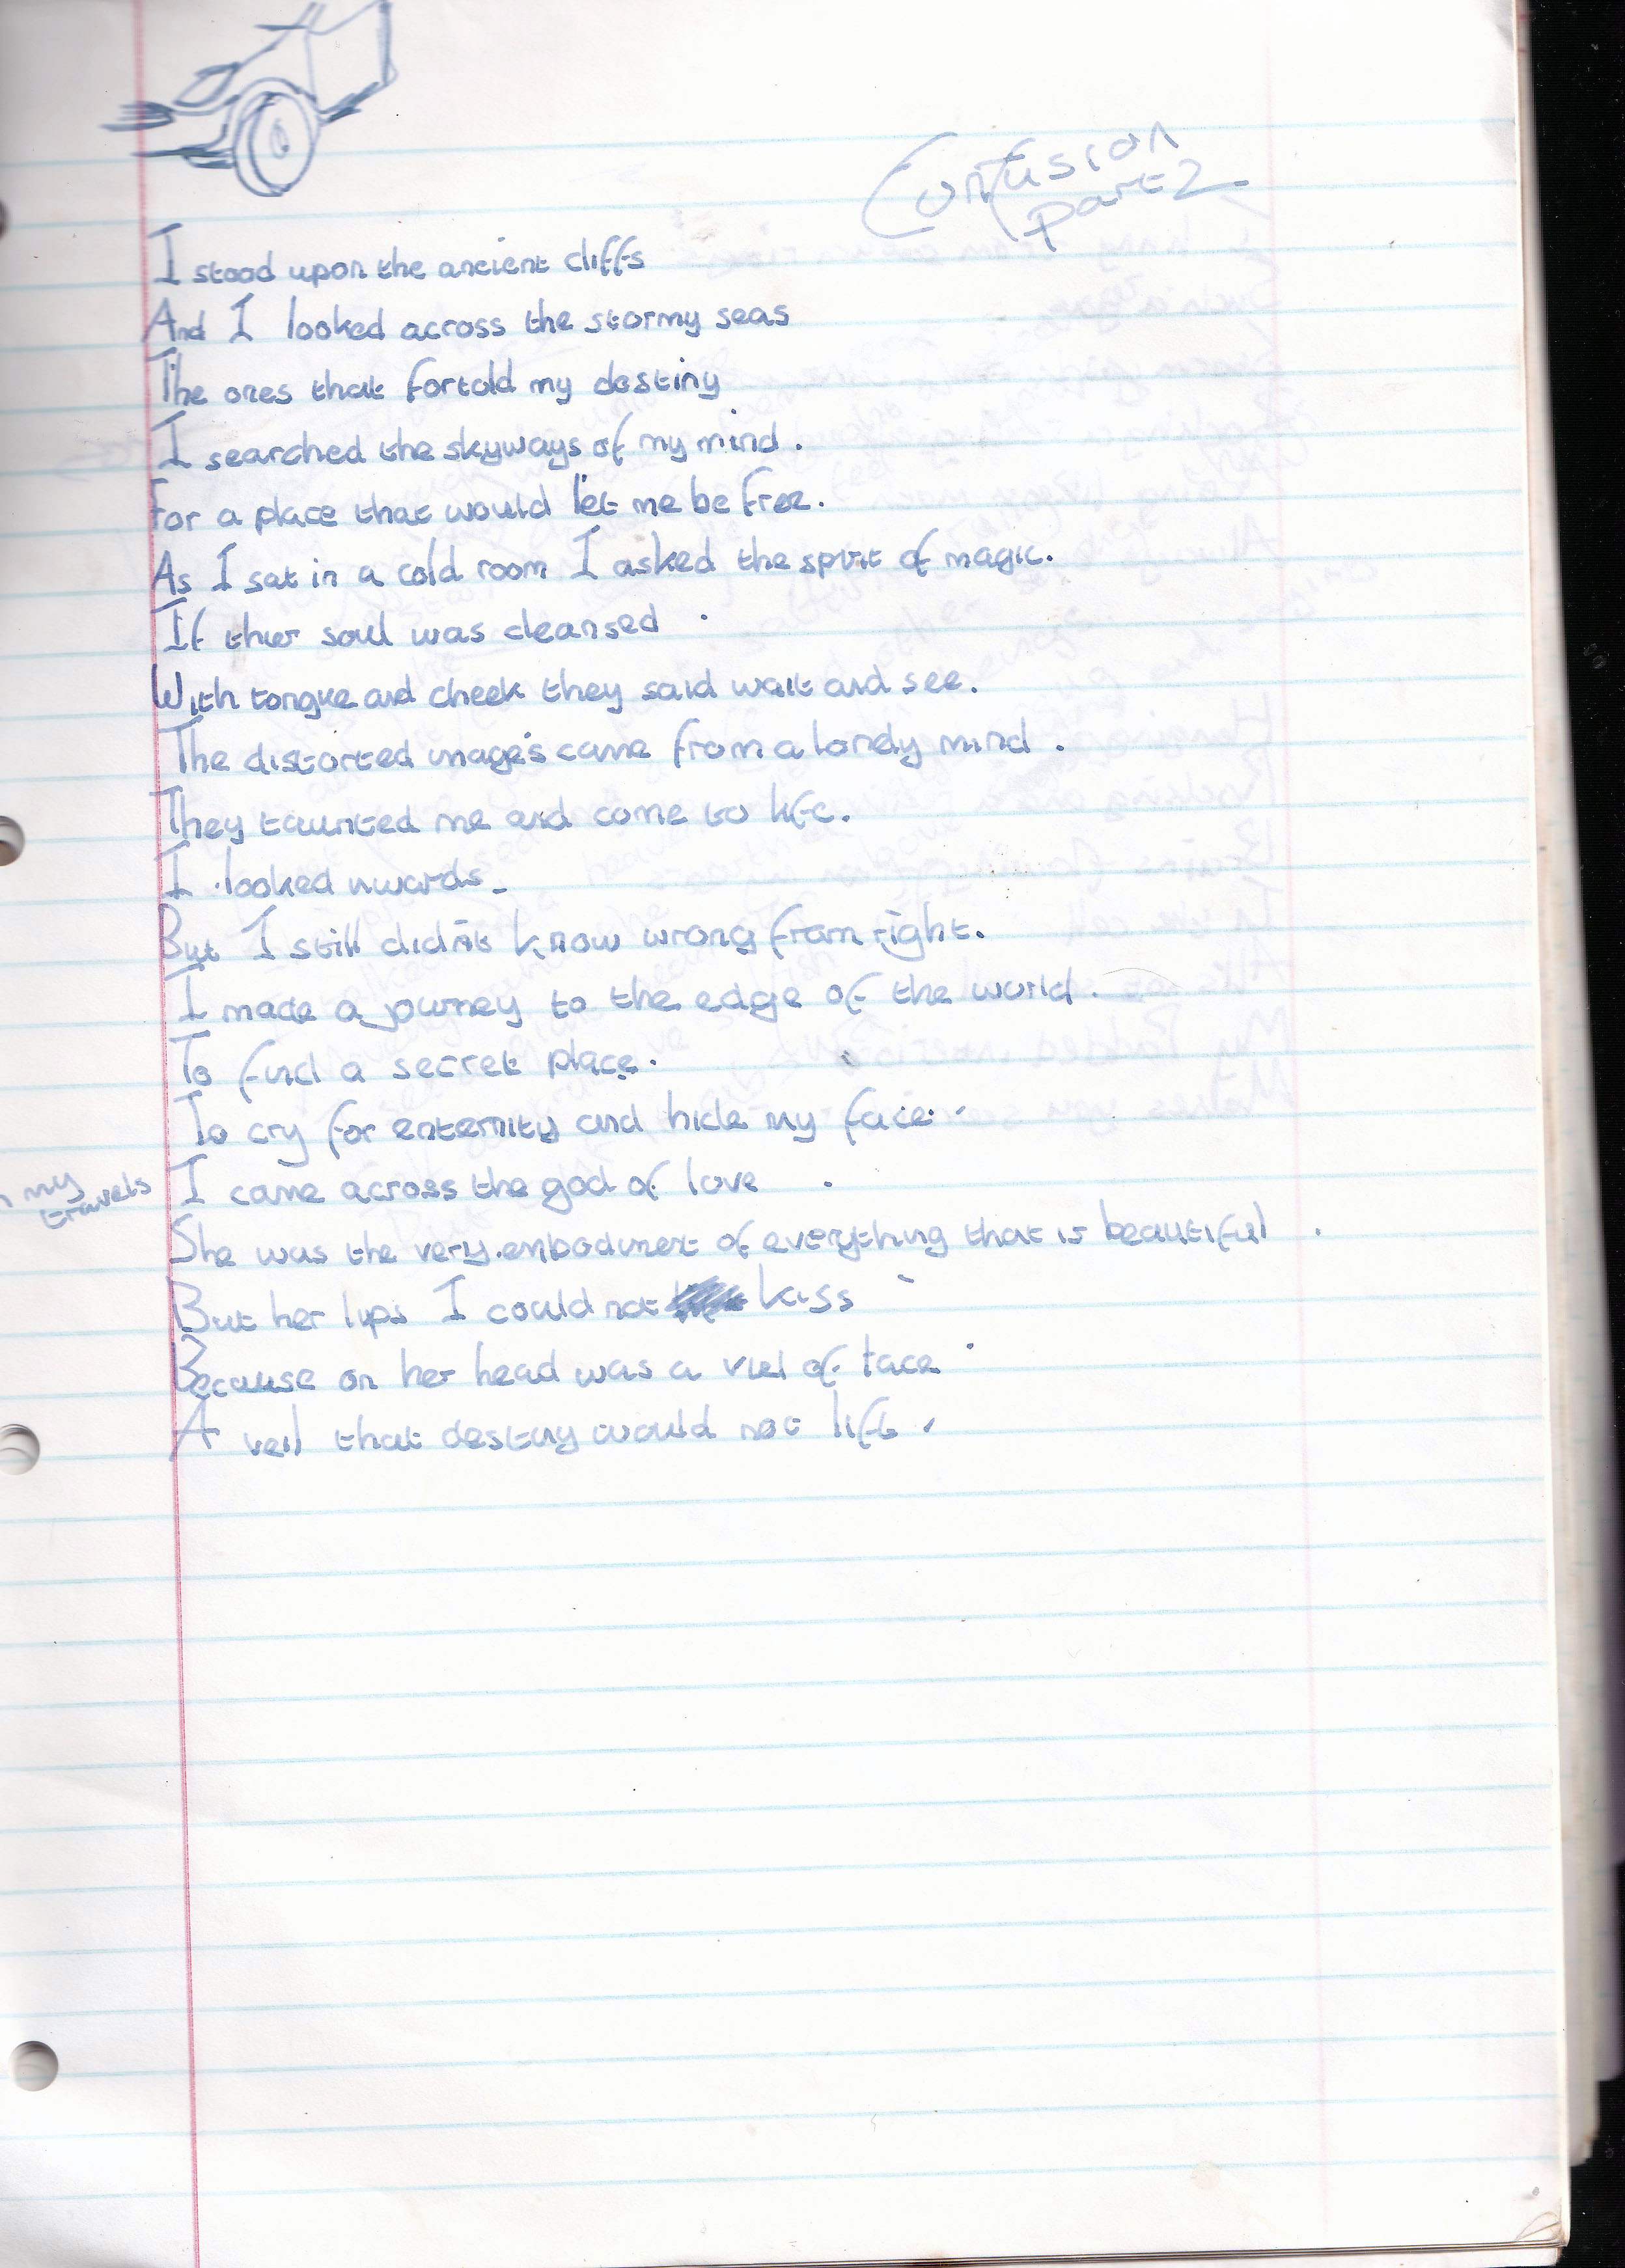 Confusion
part 2
I stood upon the ancient cliffs
And I looked across the stormy seas
The ones that fortold my destiny
I searched the skyways of my mind.
For a place that would let me be free.
As I sat in a cold room I asked the spirit of magic.
If thier soul was cleansed
With tongue and cheek they said wait and see.
The distorted image's came from a lonely mind.
They taunted me and come to life.
I looked inwards
But I still didn't know wrong from right.
I made a journey to the edge of the world.
To find a secret place.
To cry for enternity and hide my face.
my
travels
I came across the god of love.
She was the very embodiment of everything that is beautiful.
But her lips I could not kiss
Because on her head was a viel of
A veil that destiny would not lift.